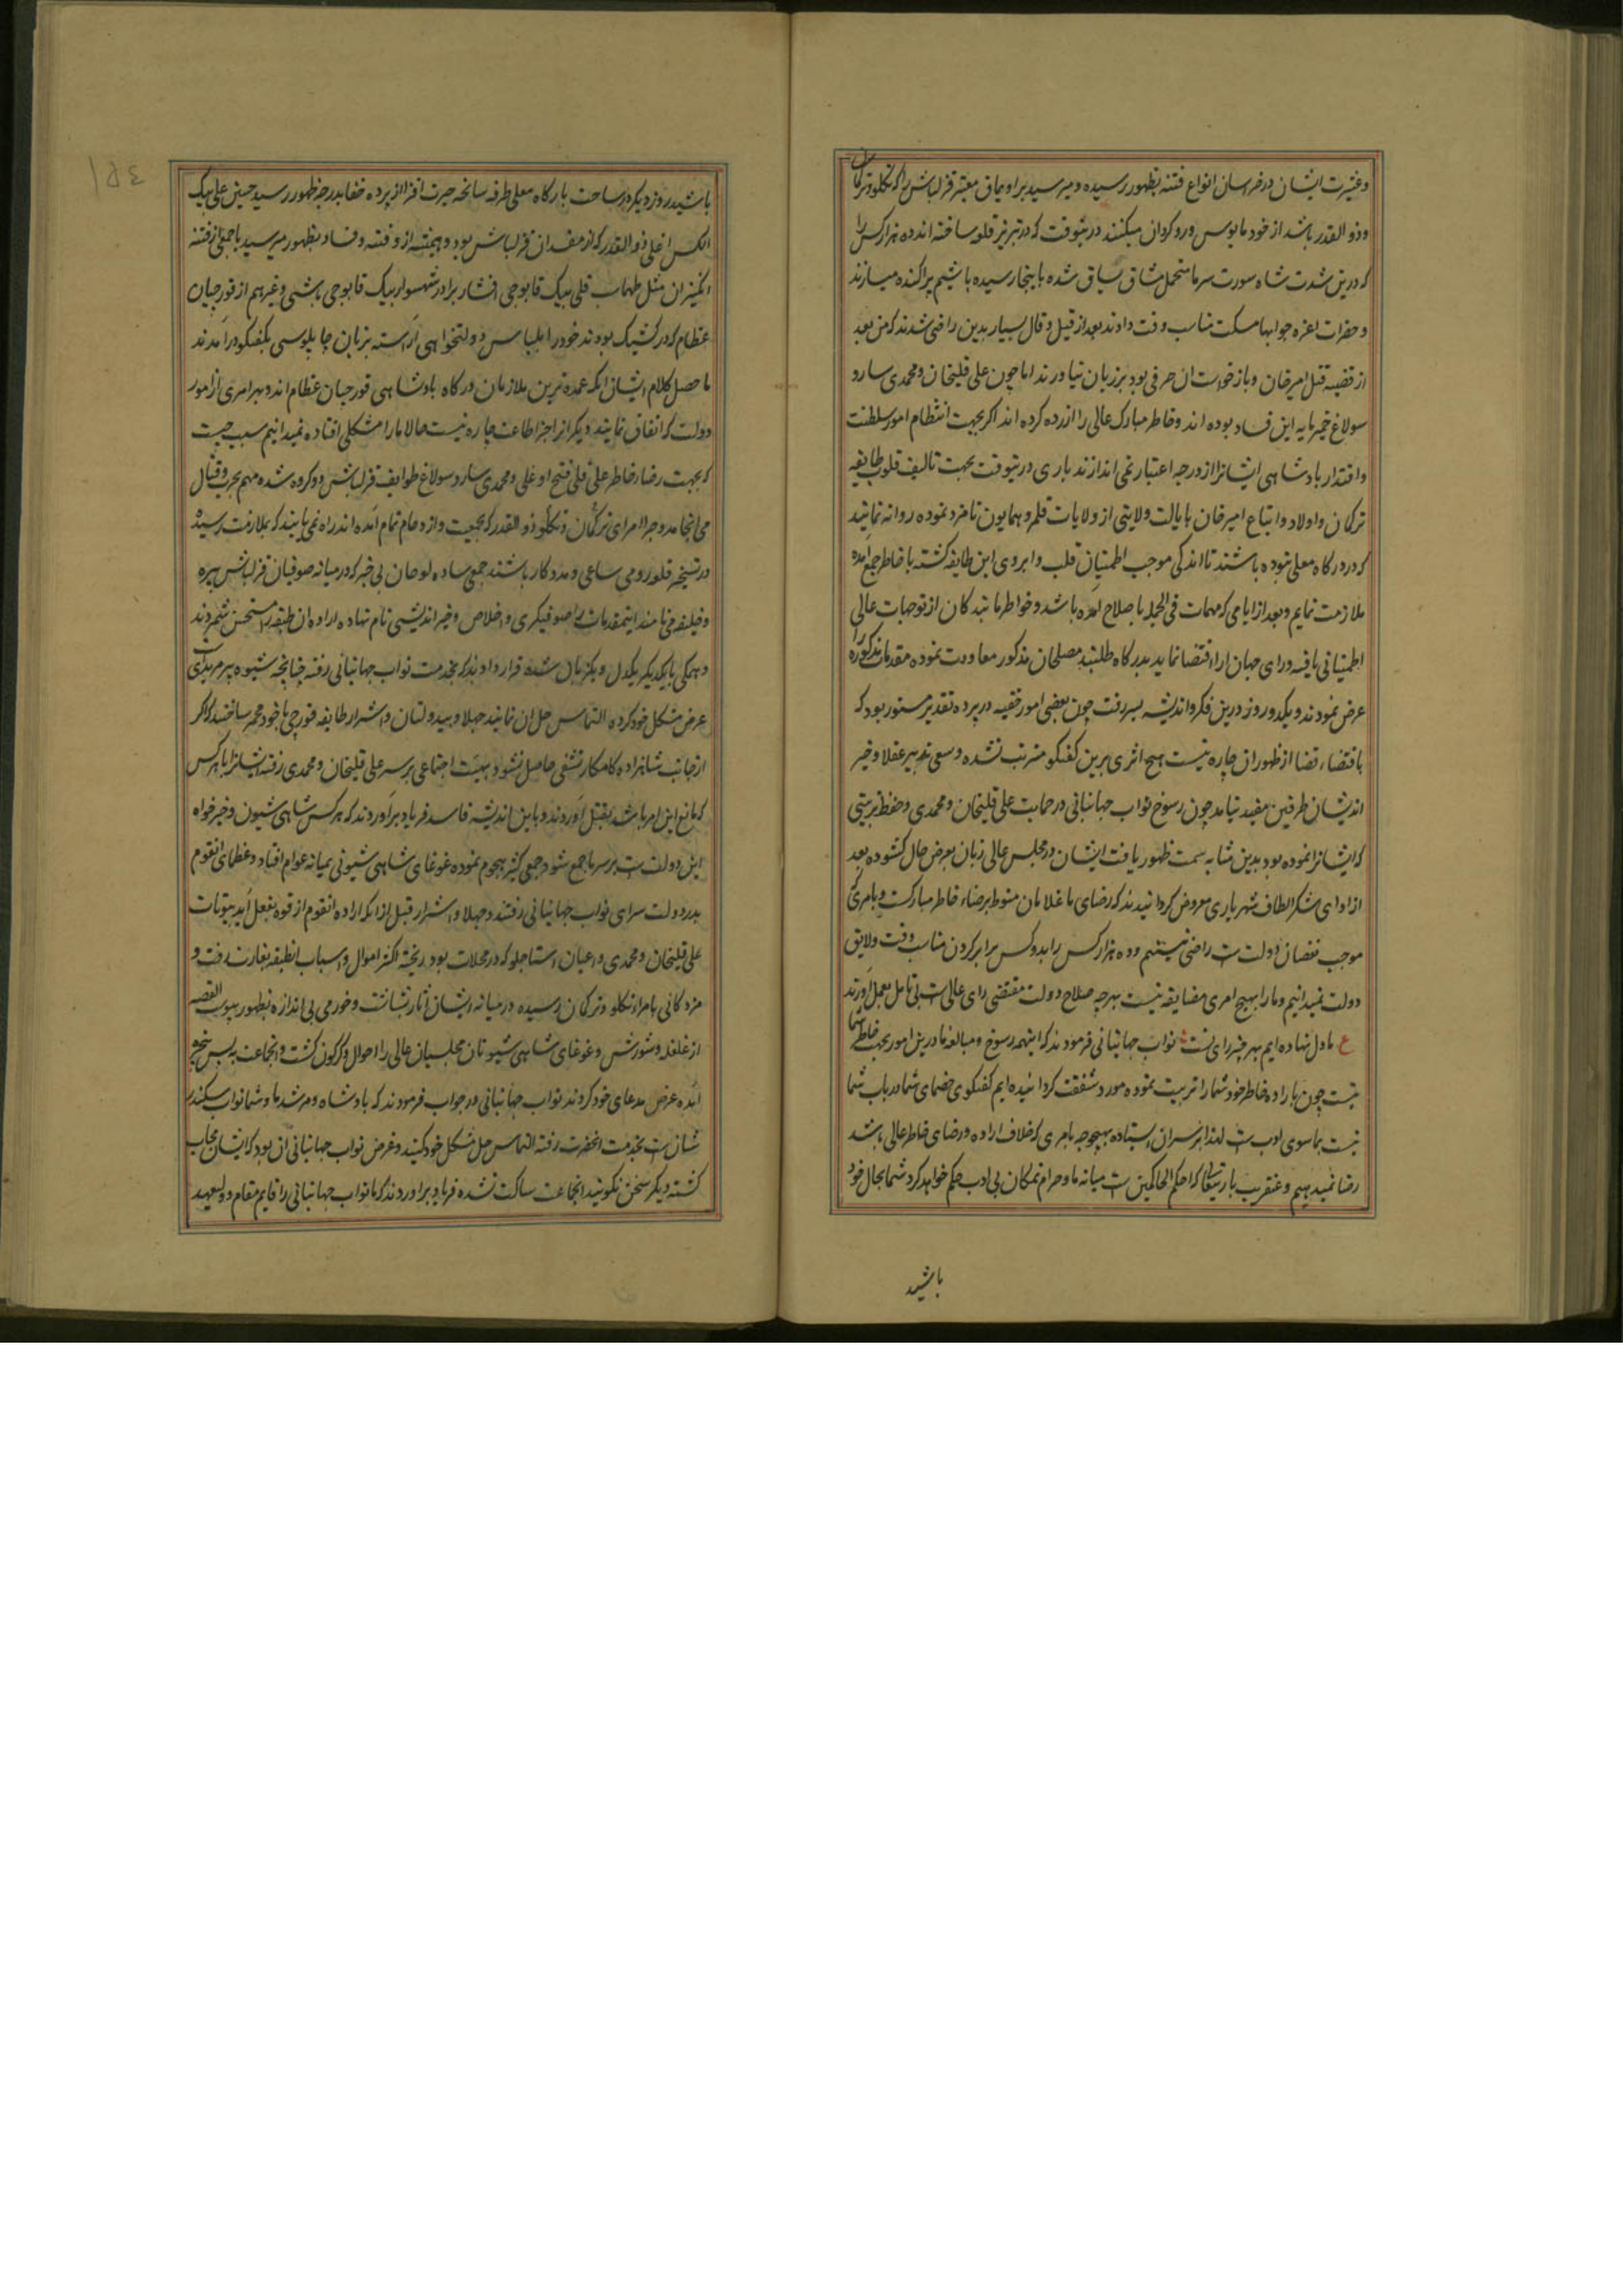 وعشیرت ایشان در خراسان انواع فتنه بظهور رسیده و میرسید برادیماق معتبر قزلباش را که تکلو و ترکمان
و ذو القدر باشد از خود مایوس و رو کردان میکنند درینوقت که در تبریز قلعه ساخته اند ده هزار کس را
که درین شدت شاه سورت سرما متحمل مشاق سیاق شده باینجا رسیده باشیم پراکنده میسازند
و حضرات اعزه جوابها مسکت مناسب وقت دادند بعد از قیل و قال بسیار بدین راضی شدند که من بعد
از قضیه قتل امیرخان و بازخواست ان حرفی بود بر زبان نیاورند اما چون علی قلیخان و محمدی سارو
سولاغ خمیرمایه این فساد بوده اند و خاطر مبارک عالی را ازرده کرده اند اکر بجهت انتظام امور سلطنت
و اقتدار بادشاهی ایشانرا از درجه اعتبار نمی اندازند باری درینوقت بجهت تالیف قلوب طایفه
ترکمان و اولاد و اتباع امیرخان بایالت ولایتی از ولایات قلمرو همایون نامزد نموده روانه نمایند
که در درکاه معلی نبوده باشند تا اندکی موجب اطمینان قلب و ابروی این طایفه کشته با خاطر جمع امده
ملازمت نمایم و بعد از ایامی که مهمات فی الجمله باصلاح امده باشد و خواطر ما بندکان از توجهات عالی
اطمینانی یافته و رای جهان ارا اقتضا نماید بدرکاه طلبند مصلحان مذکور معاودت نموده مقدمات مذکوره را
عرض نمودند و یکدو روز درین فکر و اندیشه بسر رفت چون بعضی امور خفیه در پرده تقدیر مستور بود که
باقتضاء قضا از ظهور ان چاره نیست هیچ اثری برین کفتکو مترتب نشده و سعی تدبیر عقلا و خیر
اندیشان طرفین مفید نیامد چون رسوخ نواب جهانبانی در حمایت علی قلیخان و محمدی و حفظ تربیتی
که ایشانرا نموده بود بدین مثابه سمت ظهور یافت ایشان در مجلس عالی زبان بعرض حال کشوده بعد
از ادای شکر الطاف شهریاری معروض کردانیدند که رضای ما غلامان منوط برضاء خاطر مبارکست و بامری که
موجب نقصان دولت است راضی نیستیم و ده هزار کس را بدو کس برابر کردن مناسب وقت و لایق
دولت نمیدانیم و ما را بهیچ امری مضایقه نیست بهرچه صلاح دولت مقتضی رای عالی است بی تامل بعمل اورند
ع ما دل نهاده ایم بهر چیز رای تست نواب جهانبانی فرمودند که اینهمه رسوخ و مبالغه ما درین امور بجهت خاطر شما
نیست چون باراده خاطر خود شما را تربیت نموده مورد شفقت کردانیده ایم کفتکوی خصمای شما در باب شما
نسبت بما سوی ادب است لهذا بر سر ان ایستاده بهیچوجه بامری که خلاف اراده و رضای خاطر عالی باشد
رضا نمیدهیم و عنقریب باریتعالی که احکم الحاکمین است میانه ما و حرام نمکان بی ادب حکم خواهد کرد شما بحال خود
باشید
١٥٤
باشید روز دیکر در ساحت بارکاه معلی طرفه سانحه حیرت افزا از پرده خفا بدرجه ظهور رسید حسین علی بیک
الکس اغلی ذو القدر که از مفسدان قزلباش بود و همیشه ازو فتنه و فساد بظهور میرسید با جمعی از فتنه
انکیزان مثل طهماسب قلی بیک قابوجی افشار برادر شهسوار بیک قابوجی باشی و غیرهم از قورچیان
عظام که در کشیک بودند خود را بلباس دولتخواهی اراسته بزبان چاپلوسی بکفتکو در امدند
ماحصل کلام ایشان انکه عمده ترین ملازمان درکاه بادشاهی قورچیان عظام اند و بهر امری از امور
دولت که اتفاق نمایند دیکر انرا جز اطاعت چاره نیست حالا ما را مشکلی افتاده نمیدانیم سبب چیست
که بجهت رضاء خاطر علی قلی فتح اوغلی و محمدی سارو سولاغ طوایف قزلباش دو کروه شده مهم بحرب و قتال
می انجامد و چرا امرای ترکمان و تکلو و ذو القدر که بجمعیت و ازدحام تمام امده اند راه نمی یابند که بملازمت رسیده
در تسخیر قلعه رومی ساعی و مددکار باشند جمعی ساده لوحان بی خبر که در میانه صوفیان قزلباش بهره
و خلیفه می نامند اینمقدمات را صوفیکری و اخلاص و خیر اندیشی نام نهاده اراده ان طبقه را مستحسن شمردند
و همکی با یکدیکر یکدل و یکزبان شده قرار دادند که بخدمت نواب جهانبانی رفته چنانچه شیوه پیر مریدیست
عرض مشکل خود کرده التماس حل ان نمایند جهلا و بیدولتان و اشرار طایفه قورچی با خود مخمر ساختند که اکر
از جانب شاهزاده کامکار تشفی حاصل نشود بهیئت اجتماعی بر سر علی قلیخان و محمدی رفته ایشانرا با هر کس
که مانع این امر باشد بقتل اورند و باین اندیشه فاسد فریاد براوردند که هر کس شاهی شیون و خیر خواه
این دولت است بر سر ما جمع شود جمعی کثیر هجوم نموده غوغای شاهی شیونی بمیانه عوام افتاد و عظمای انقوم
بدر دولت سرای نواب جهانبانی رفتند و جهلا و اشرار قبل از انکه اراده انقوم از قوه بفعل اید بیوتات
علی قلیخان و محمدی و اعیان استاجلو که در محلات بود ریخته اکثر اموال و اسباب انطبقه بغارت رفت و
مژدکانی بامراء تکلو و ترکمان رسیده در میانه ایشان اثار بشاشت و خرمی بی اندازه بظهور پیوست القصه
از غلغله و شورش و غوغای شاهی شیونان مجلسیان عالی را احوال دکرکون کشت و انجماعت به پس پنجره
امده عرض مدعای خود کردند نواب جهانبانی در جواب فرمودند که بادشاه و مرشد ما و شما نواب سکندر
شان است بخدمت انحضرت رفته التماس حل مشکل خود کنید و غرض نواب جهانبانی ان بود که ایشان مجاب
کشته دیکر سخن نکویند انجماعت ساکت نشده فریاد براوردند که ما نواب جهانبانی را قایم مقام و ولیعهد